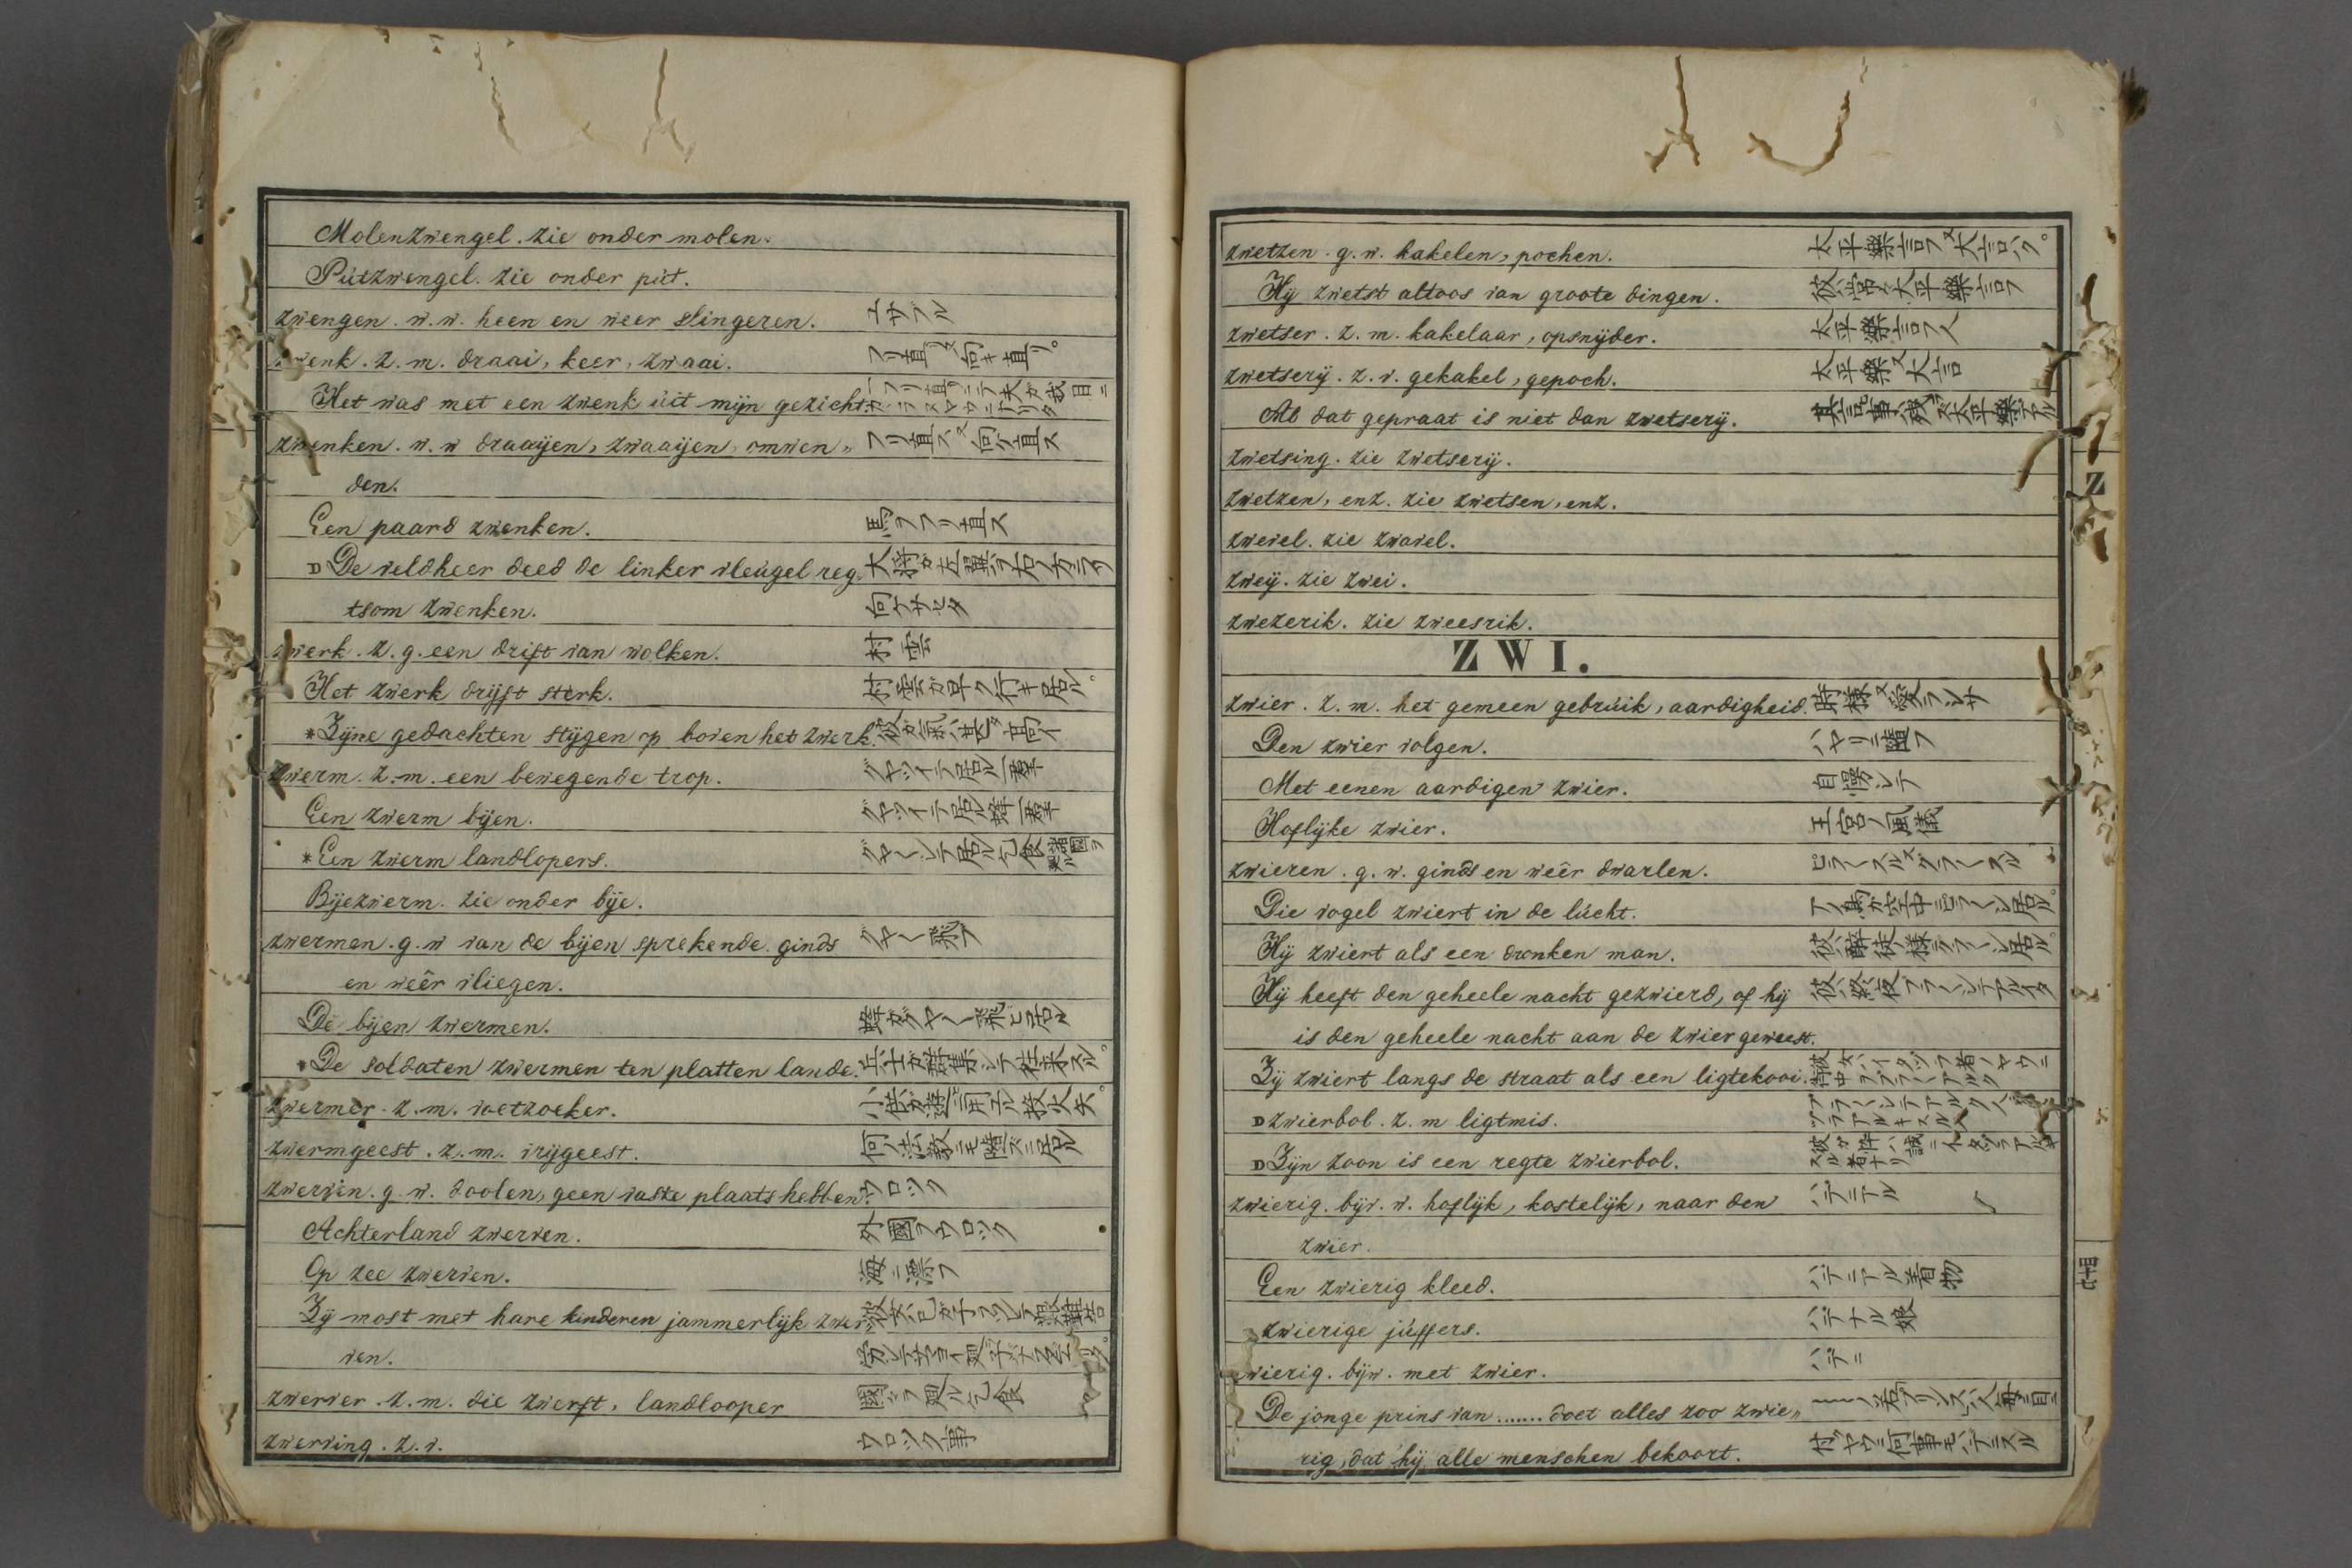 Molenzwengel. zie onder molen.
Pútzwengel. zie onder pút.
zwengen. w.w. heen en weer slingeren. ユサブル
zwenk. z.m. draai, keer, zwaai. フリ直リ又向キ直リ。
Het was met een zwenk úit mijn gezicht.
zwenken. w.w draaijen, zwaaijen, omwen〃 フリ直ス又向ケ直ス
den.
Een paard zwenken. 馬ヲフリ直ス
D De veldheer deed de linker vleúgel reg〃 大将ガ左翼ヲ右ノ方ニ
tsom zwenken. 向ケサセタ
zwerk. z.g. een drift van wolken. 村雲
Het zwerk drijft sterk. 村雲ガ早ク行キ居ル。
*Zijne gedachten stijgen op boven het zwerk. 彼ガ氣ハ甚ダ高イ
zwerm. z.m. een bewegende trop. グヤツイテ居ル一羣
Een zwerm bijen. グヤツイテ居ル蜂一羣
*Een zwerm landlopers.
Bijezwerm. zie onder bije.
zwermen. g.w van de bijen sprekende. ginds グヤ〱飛フ
en weêr vliegen.
De bijen zwermen. 蜂ガグヤ〱飛ヒ居ル
*De soldaten zwermen ten platten lande. 兵士ガ群集シテ徃来スル。
zwermer. z.m. voetzoeker. 小供ガ遊ニ用エル放火矢。
zwermgeest. z.m. vrijgeest. 何ノ法教ニモ隨ズニ居ル
zwerven. g.w. doolen, geen vaste plaats hebben. ウロツク
Achterland zwerven. 外國ヲウロツク
Op zee zwerven. 海ニ漂フ
Zij most met hare kinderen jammerlijk zwer〃
ven.
zwerver. z.m. die zwerft, landlooper 國〻ヲ廻ル乞食
zwerving. z.v. ウロツク事
zwetzen. g.w. kakelen, pochen. 太平樂言フ又大言ハク。
Hij zwetst altoos van groote dingen. 彼ハ常ニ大平樂言フ
zwetser. z.m. kakelaar, opsnijder. 太平樂言フ人
zwetserij. z.v. gekakel, gepoch. 太平樂又大言
Al dat gepraat is niet dan zwetserij.
zwetsing. zie zwetserij.
zwetzen, enz. zie zwetsen, enz.
zwevel. zie zwavel.
zweij. zie zwei.
zwezerik. zie zweesrik.
ZWI.
zwier. z.m. het gemeen gebrúik, aardigheid. 時様又愛ラシサ
Den zwier volgen. ハヤリニ隨フ
Met eenen aardigen zwier. 自慢シテ
Hoflijke zwier. 王宮ノ風儀
zwieren. g.w. ginds en weêr dwarlen. ピラ〱スル又グラ〱スル
Die vogel zwiert in de lúcht. アノ鳥ガ空中ニピラ〱シ居ル。
Hij zwiert als een dronken man. 彼ハ醉徒ノ様ニフラ〱シ居ル。
Hij heeft den geheele nacht gezwierd, of hij 彼ハ終夜フラ〱シテアルイタ
is den geheele nacht aan de zwier geweest.
Zij zwiert langs de straat als een ligtekooi.
D zwierbol. z.m ligtmis.
D Zijn zoon is een regte zwierbol.
zwierig. bijv. w. hoflijk, kostelijk, naar den ハデニアル
zwier.
Een zwierig kleed. ハデニアル着物
zwierige júffers. ハデナル娘
zwierig. bijw. met zwier. ハデニ
De jonge prins van ....... doet alles zoo zwie〃
rig, dat hij alle menschen bekoort.
Z